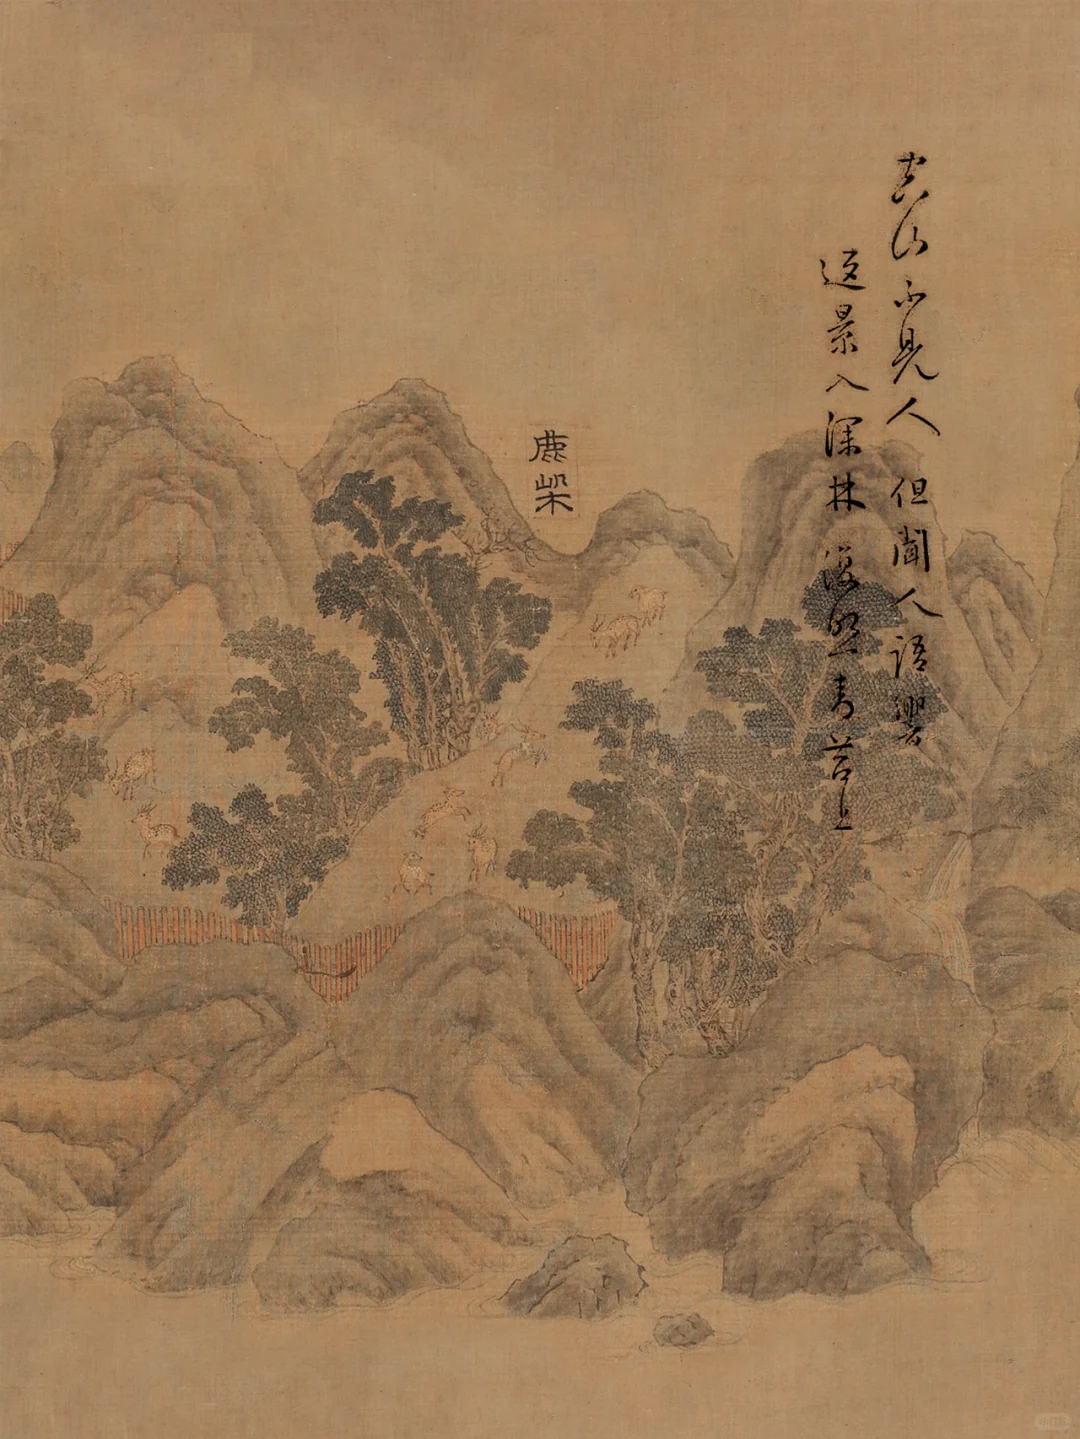 空山不見人但聞人語響
返景入深林復照青苔上
鹿柴